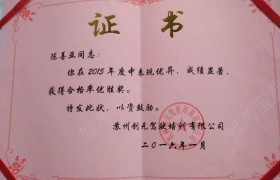 证书
陈善亚同志：
你在2015年度中表现优异，成绩显著，
获得合格率优胜奖。
特发此状，以资鼓励。
苏州创元驾驶培训有限公司
二〇一六年一月